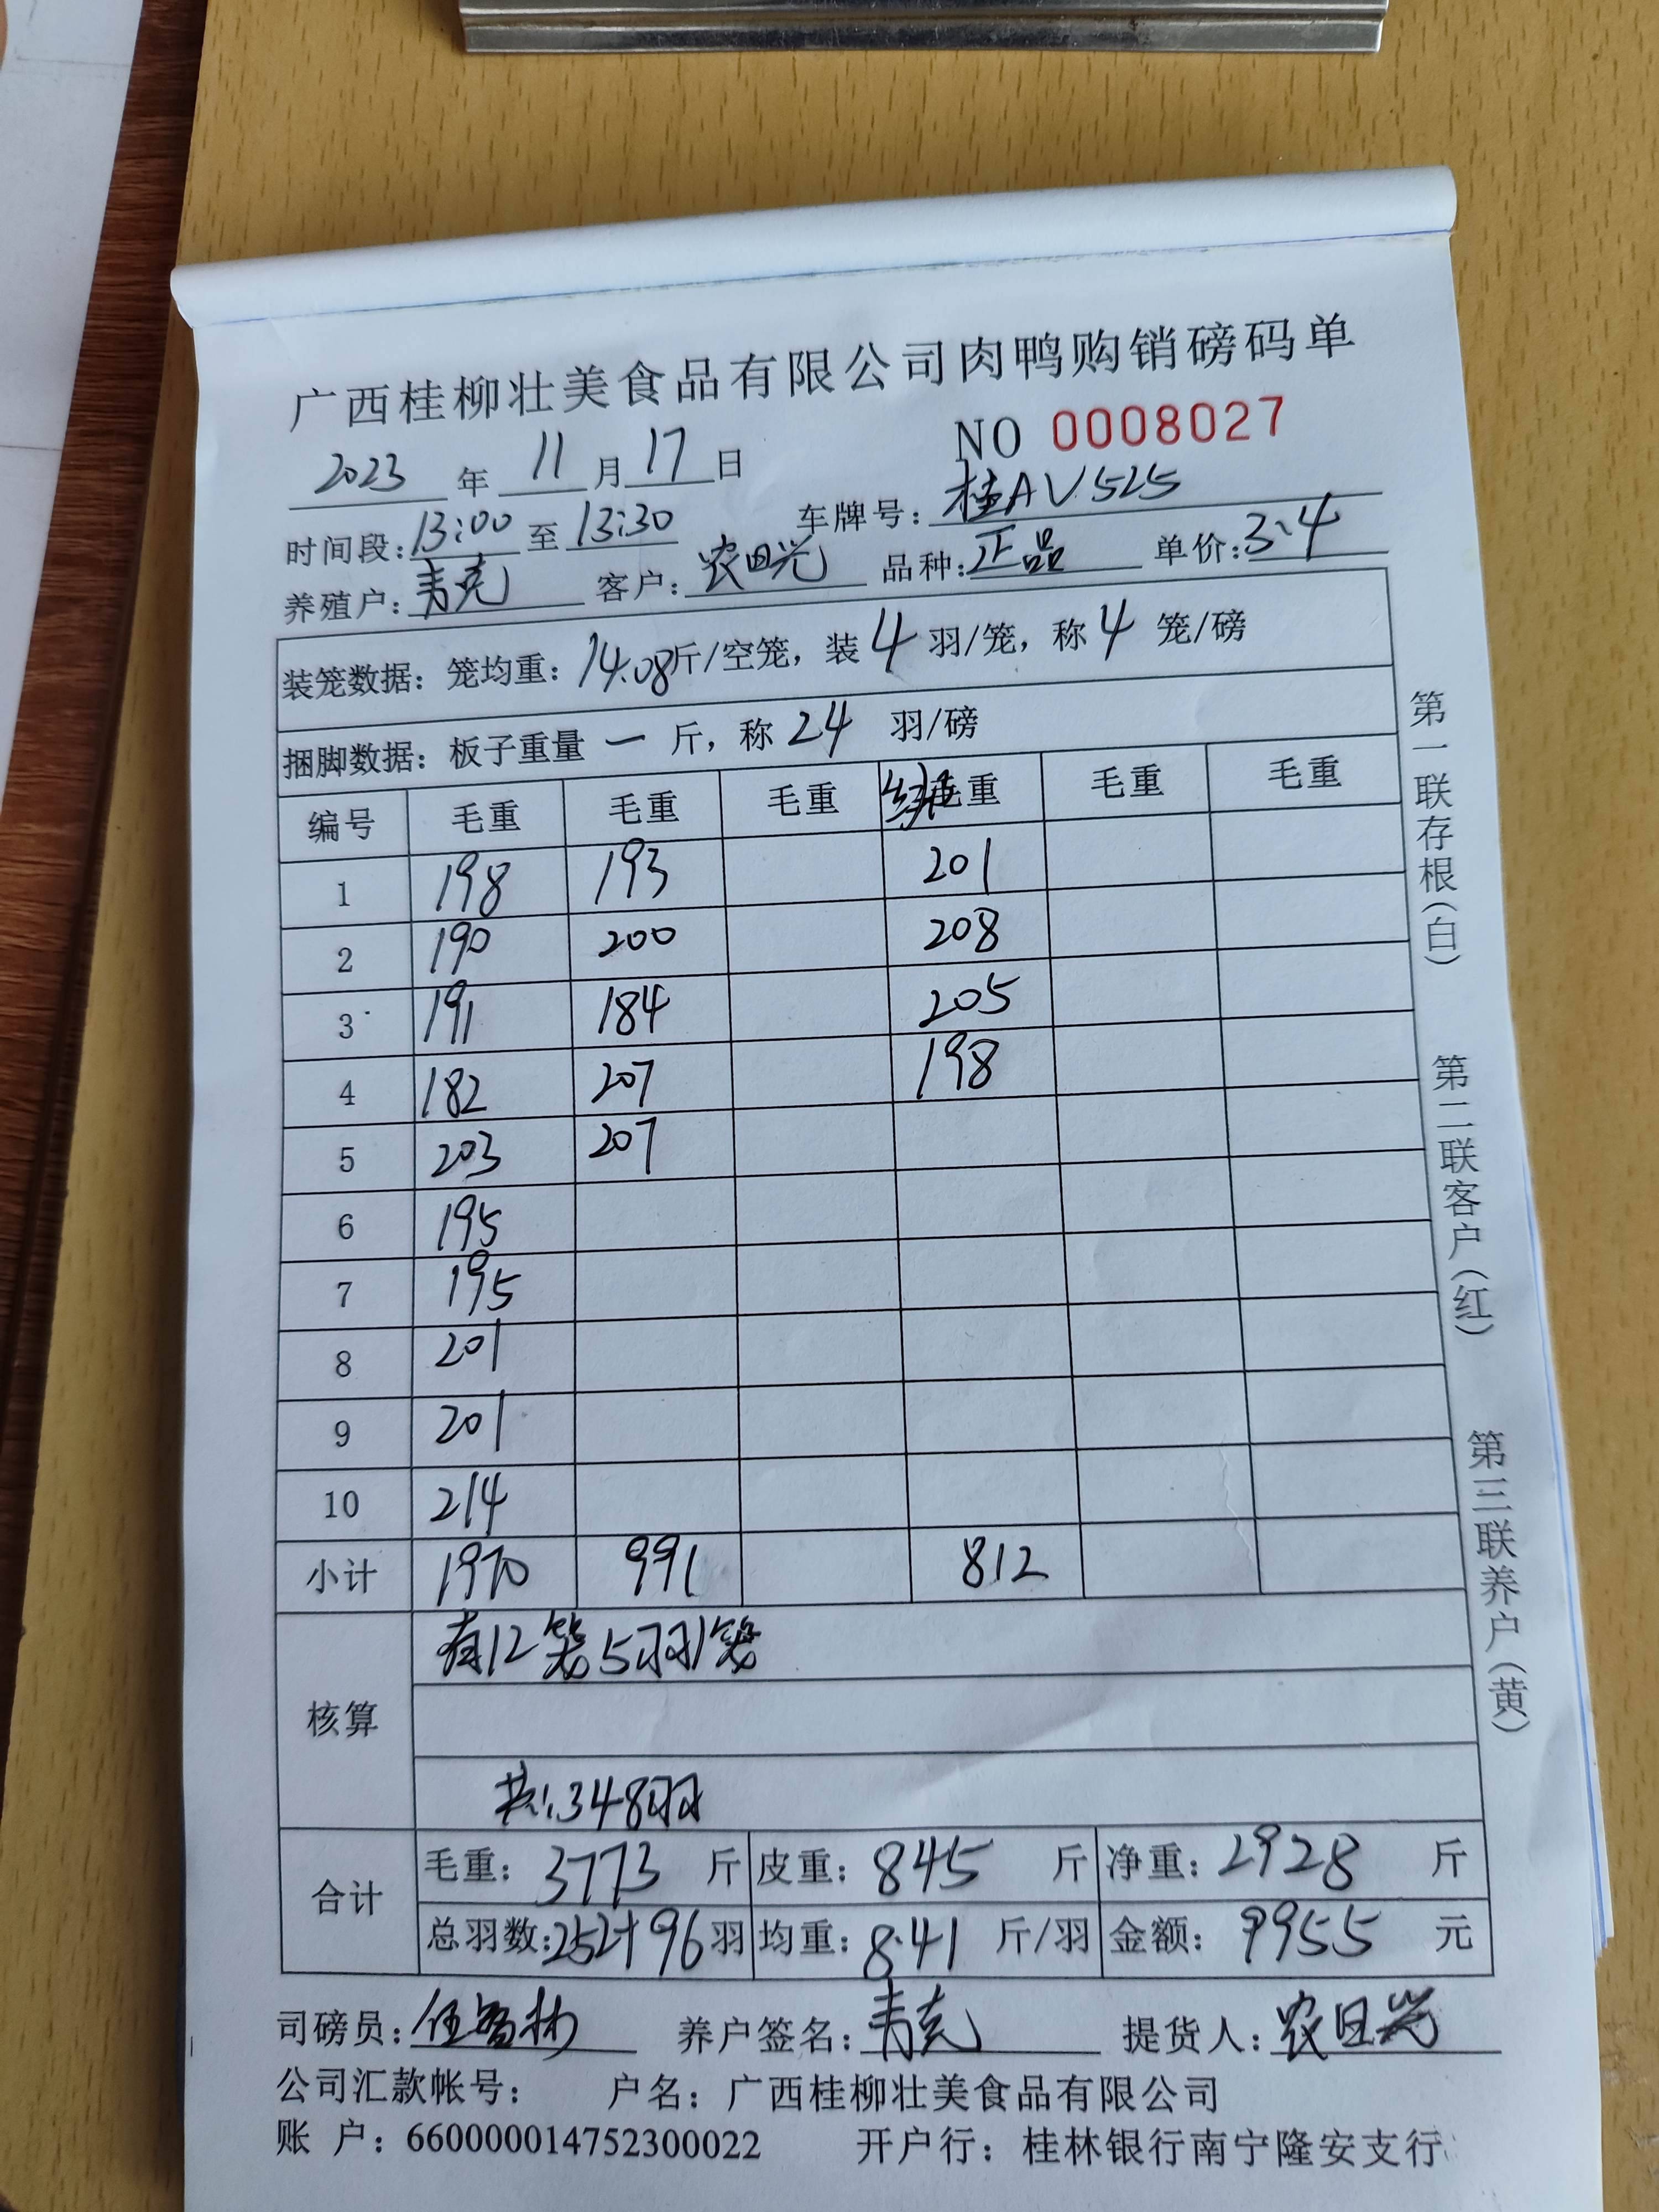 广西桂柳壮美食品有限公司肉鸭购销磅码单
NO 0008027
2023 年 11 月 17 日
时间段: 13:00 至 13:30 车牌号: 桂AV525
养殖户: 青克 客户: 农田兴 品种: 正品 单价: 3.4
装笼数据: 笼均重: 14.08 斤/空笼, 装 4 羽/笼, 称 4 笼/磅
捆脚数据: 板子重量 一 斤, 称 24 羽/磅
编号 毛重 毛重 毛重 毛重 毛重 毛重
1 198 193 201
2 190 200 208
3 191 184 205
4 182 207 198
5 203 207
6 195
7 195
8 201
9 201
10 214
小计 1970 991 812
核算 有12笼5羽1笼
共:348羽
合计 毛重: 3773 斤 皮重: 845 斤 净重: 2928 斤
总羽数: 252+96 羽 均重: 8.41 斤/羽 金额: 9955 元
司磅员: 养户签名: 青克 提货人: 农田兴
公司汇款帐号: 户名: 广西桂柳壮美食品有限公司
账 户: 660000014752300022 开户行: 桂林银行南宁隆安支行
第一联存根(白) 第二联客户(红) 第三联养户(黄)